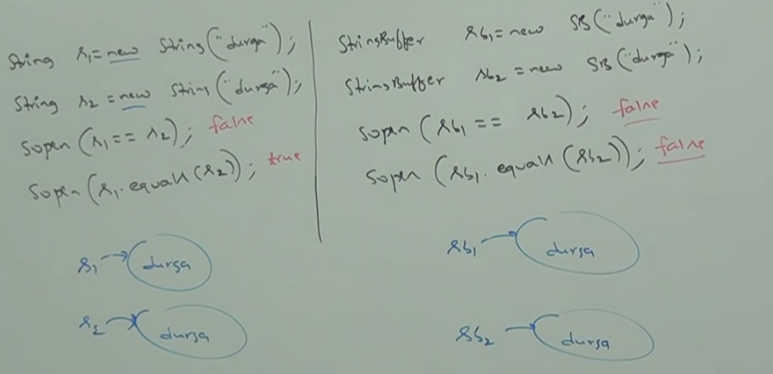 String s1 = new String("durga");
String s2 = new String("durga");
Sopln (s1 == s2); false
Sopln (s1.equals(s2)); true
s1 → durga
s2 → durga
StringBuffer sb1 = new SB("durga");
StringBuffer sb2 = new SB("durga");
Sopln (sb1 == sb2); false
Sopln (sb1.equals(sb2)); false
sb1 → durga
sb2 → durga